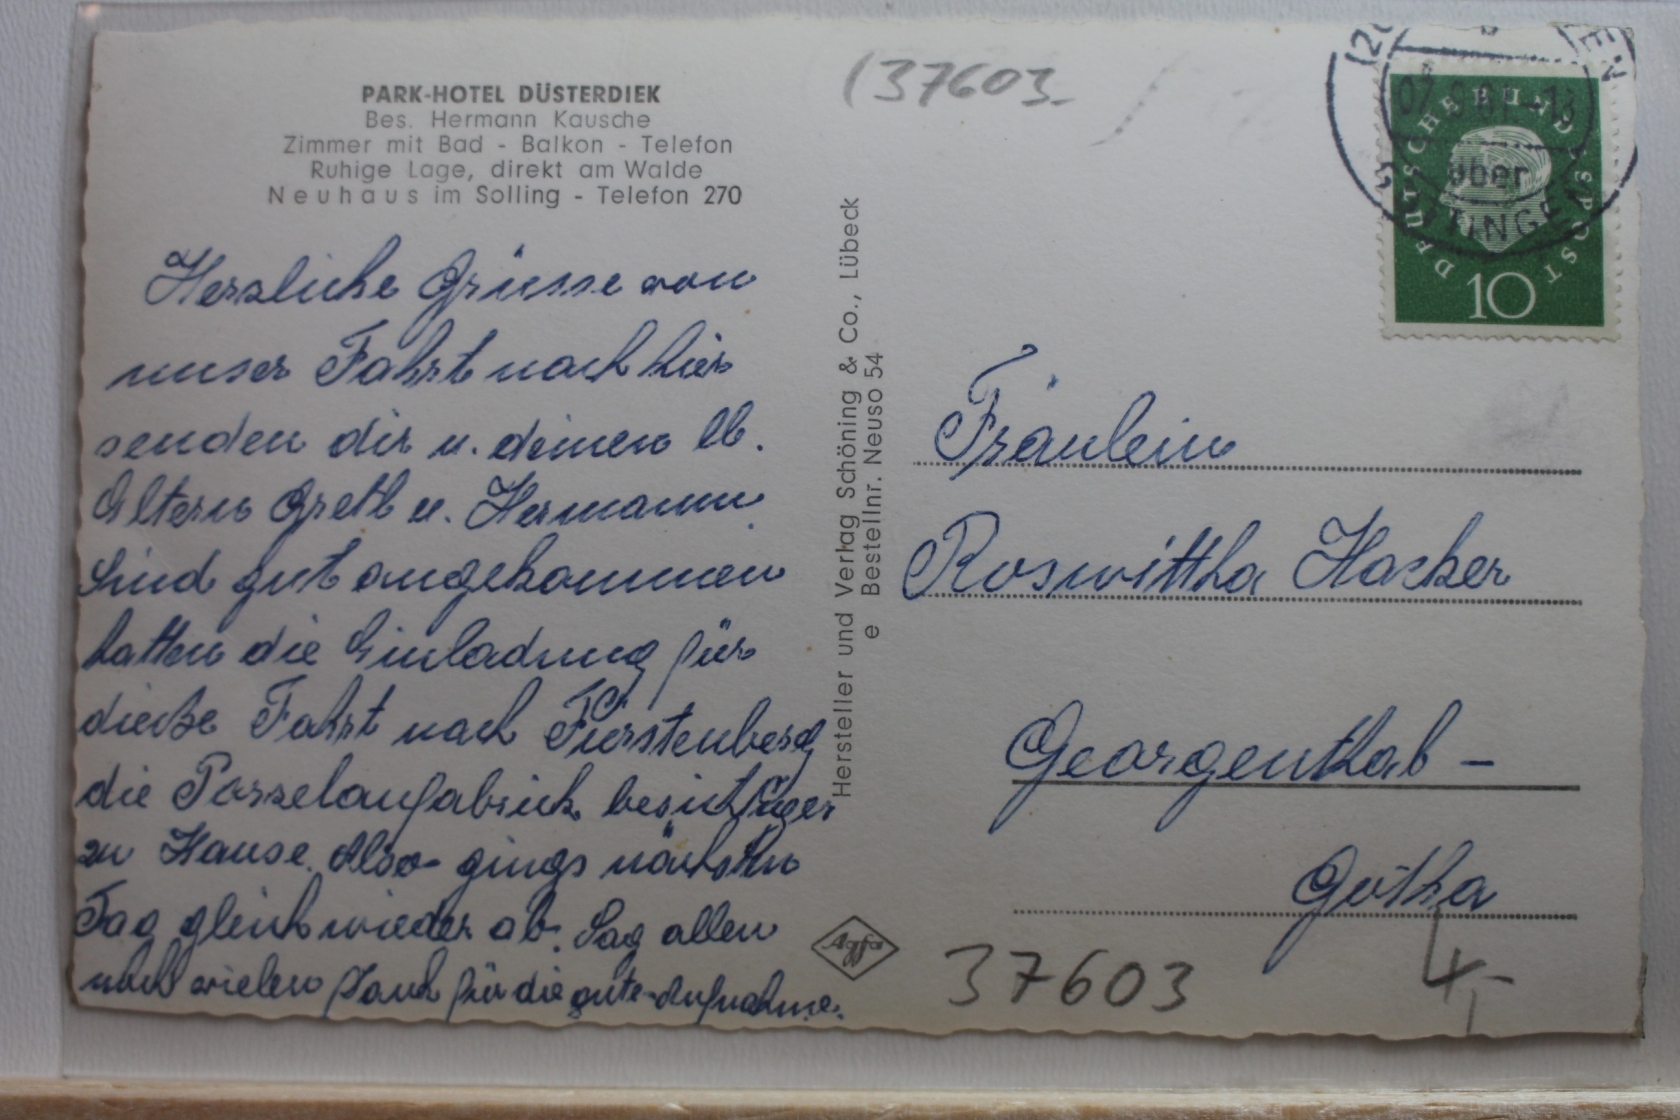 PARK-HOTEL DÜSTERDIEK
Bes. Hermann Kausche
Zimmer mit Bad - Balkon - Telefon
Ruhige Lage, direkt am Walde
Neuhaus im Solling - Telefon 270
Herzliche Grüsse von
unser Fahrt nach hier
senden dir u. deinen lb.
Eltern Gretl u. Hermann
sind gut angekommen
hatten die Einladung für
dieße Fahrt nach Fürstenberg
die Porzelanfabrick
zu Hause. Also gings nächsten
Tag gleich wieder ab. Sag allen
noch vielen Dank für die gute Aufnahme.
Hersteller und Verlag Schöning & Co., Lübeck
e Bestellnr. Neuso 54
Agfa
(37603
DEUTSCHE BUNDESPOST
10
über
Fräulein
Roswittha Hacker
Georgenthal -
Gotha
37603
4,-